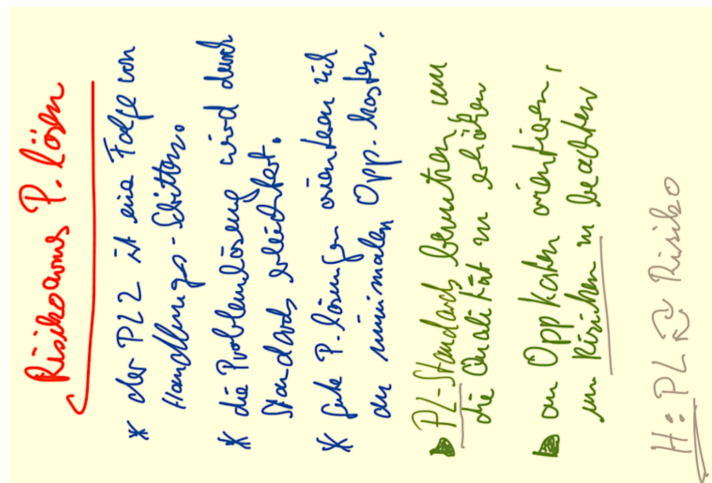 Risikoarmes P. lösen
* der PLZ ist eine Folge von
Handlungs-Schritten.
* die Problemlösung wird durch
Standards erleichtert.
* gute P.lösungen orientieren sich
an minimalen Opp.kosten.
PL-Standards benutzen um
die Qualität zu erhöhen
an Oppkosten orientieren,
um Risiken zu beachten
H: PL Risiko